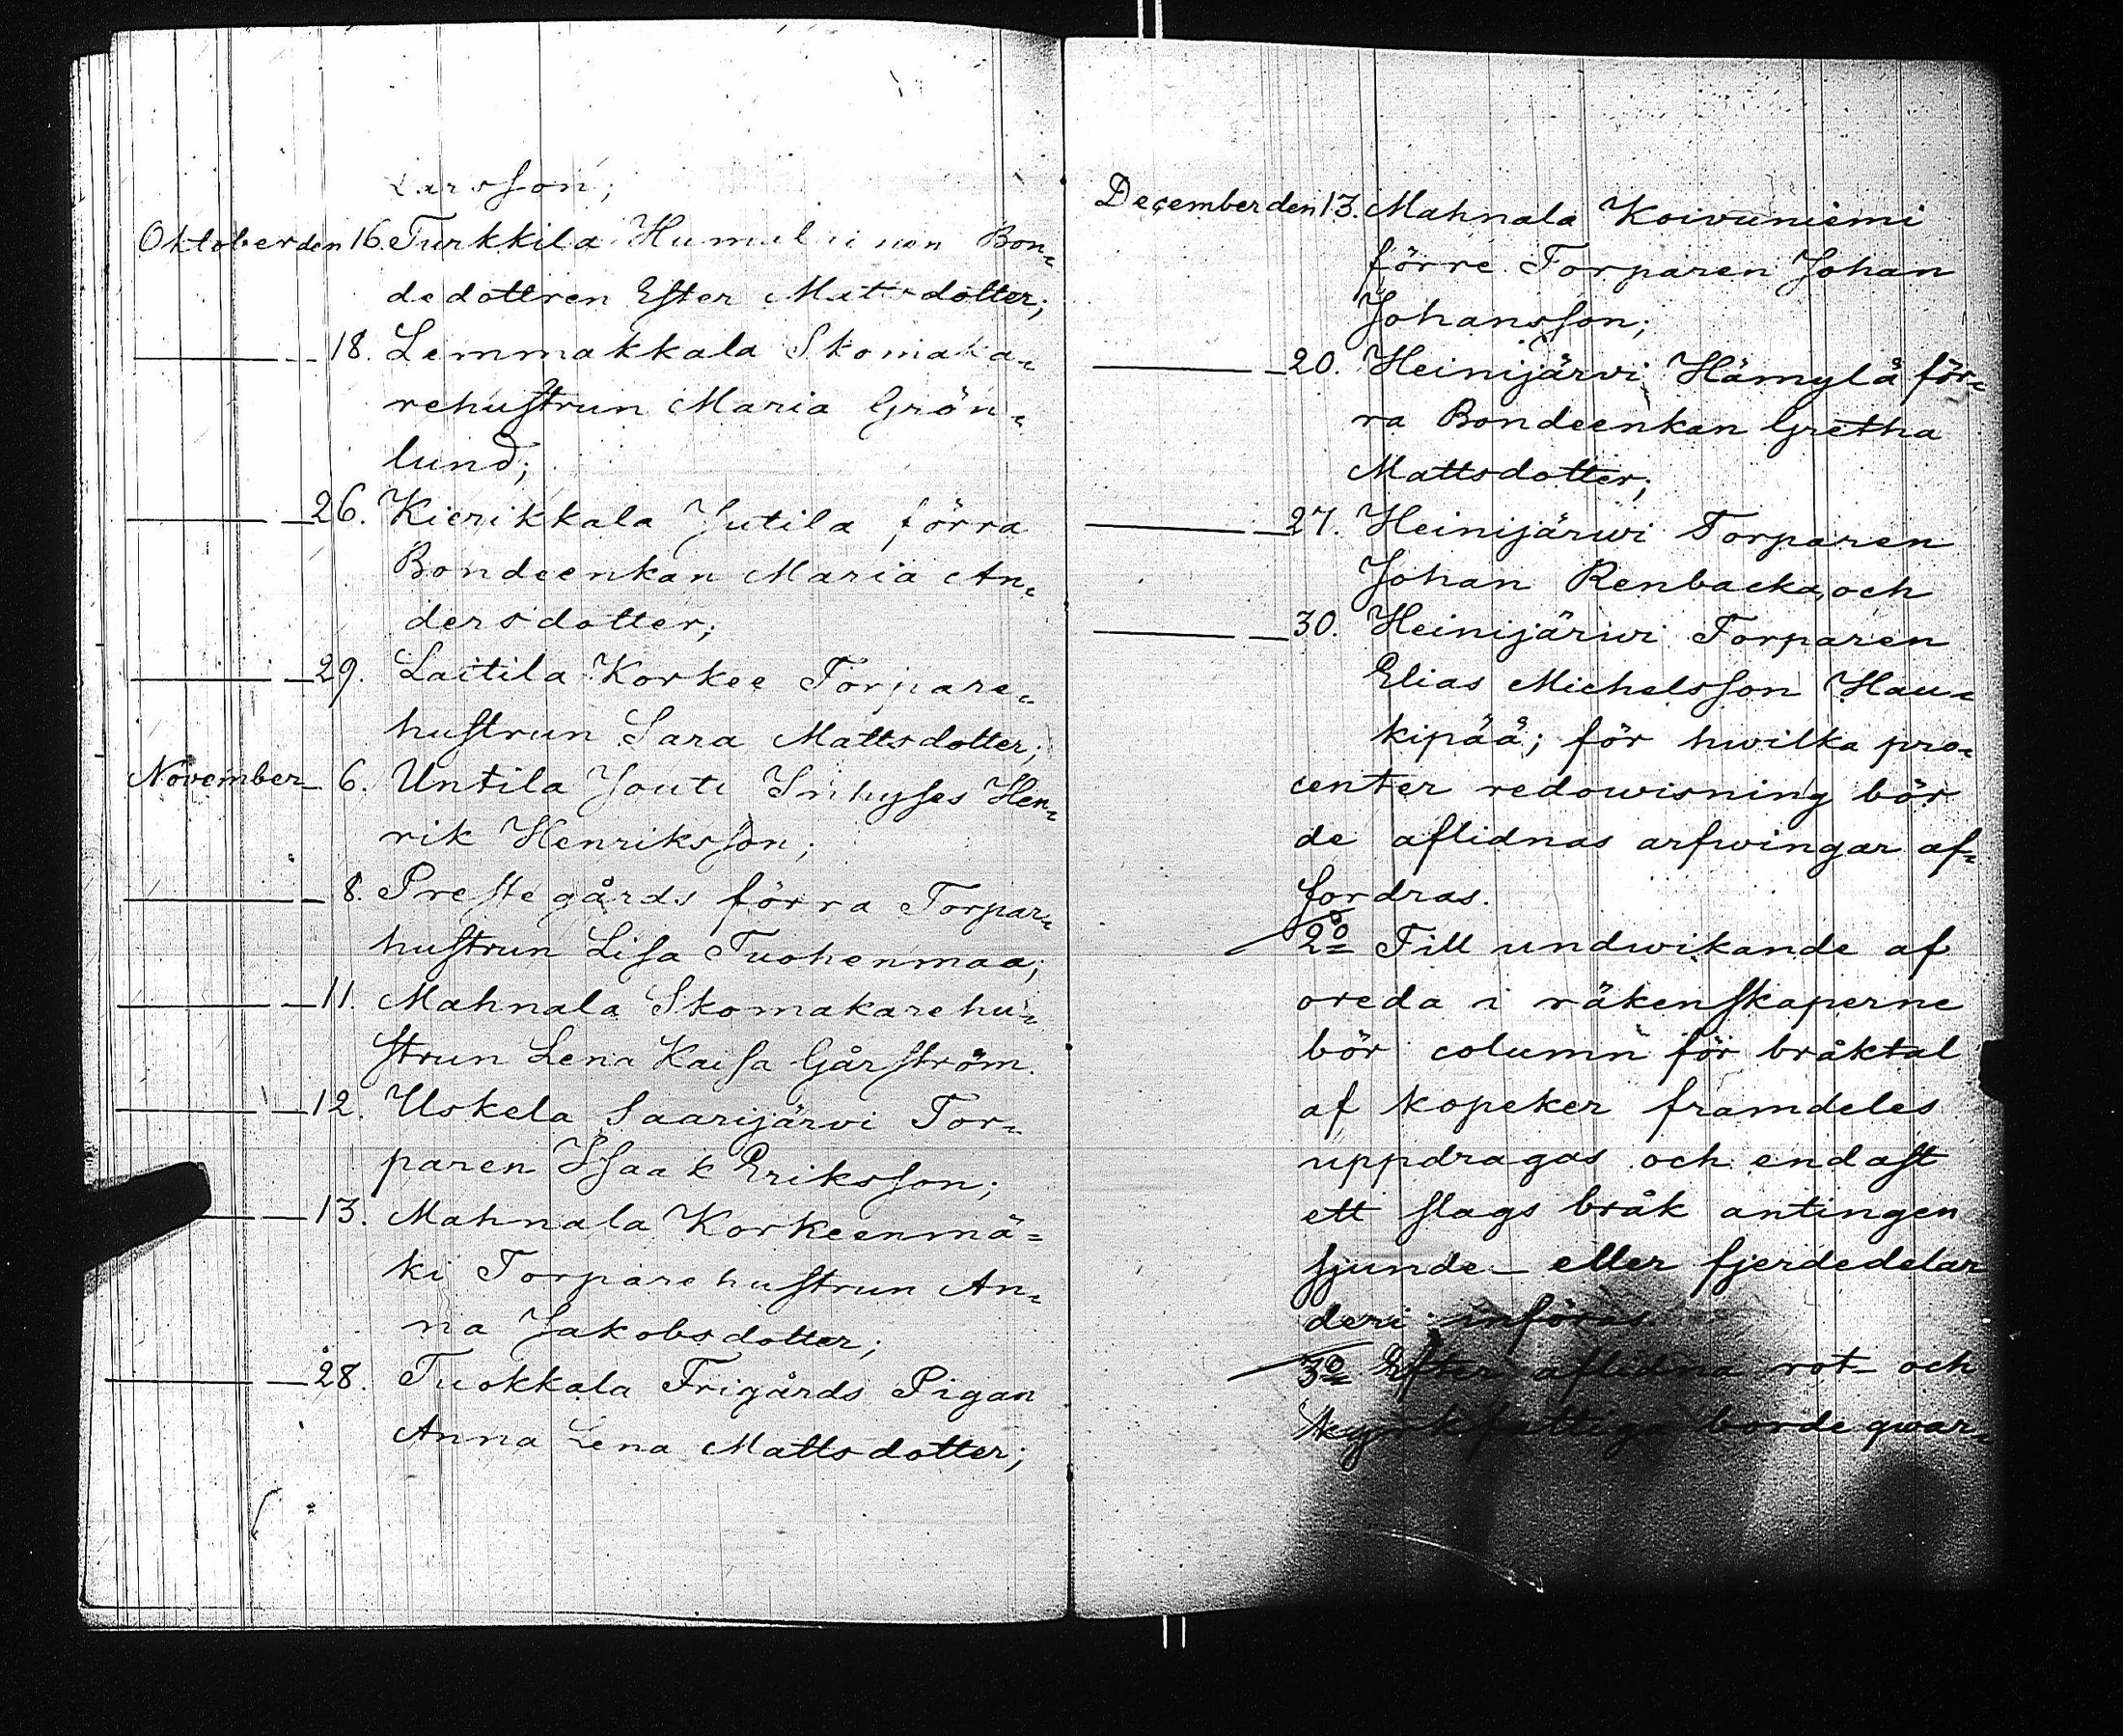 Larsson;
Oktober den 16. Turkkila Humalainen Bon=
dedottren Ester Mattsdotter;
— 18. Lemmakkala Skomaka=
rehustrun Maria Grön=
lund;
— 26. Kierikkala Jutila förra
Bondeenkan Maria An=
dersdotter;
— 29. Laitila Korkee Torpare=
hustrun Sara Mattsdotter;
November — 6. Untila Jouti Inhyses Hen=
rik Henriksson;
— 8. Prestegårds förra Torpar=
hustrun Lisa Tuohenmaa;
— 11. Mahnala Skomakarehu=
strun Lena Kaisa Gårström.
— 12. Uskela Saarijärvi Tor=
paren Isaak Eriksson;
— 13. Mahnala Korkeenmä=
ki Torparehustrun An=
na Jakobsdotter;
— 28. Tuokkala Frigårds Pigan
Anna Lena Mattsdotter;
December den 13. Mahnala Koivuniemi
förre Torparen Johan
Johansson;
— 20. Heinijärvi Hämylä för=
ra Bondeenkan Gretha
Mattsdotter;
— 27. Heinijärwi Torparen
Johan Renbacka, och
— 30. Heinijärwi Torparen
Elias Michelsson Hau=
kipää; för hwilka pro=
center redowisning bör
de aflidnas arfwingar af=
fordras.
2o Till undwikande af
oreda i räkenskaperne
bör column för bråktal
af kopeker framdeles
uppdragas och endast
ett slags bråk antingen
sjunde- eller fjerdedelar
deri införas.
3o Efter aflidna rot- och
kyrkfattiga borde qwar=